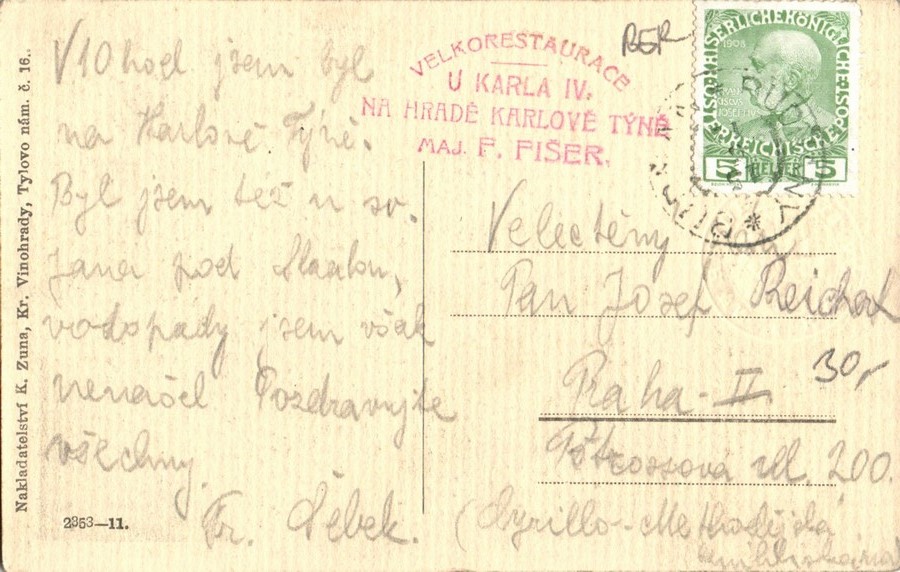 V 10 hod jsem byl
na Karlově Týně.
Byl jsem též u sv.
Jana pod Skalou,
vodopády jsem však
nenašel Pozdravujte
všechny.
Fr. Šebek.
Nakladatelství K. Zuna, Kr. Vinohrady, Tylovo nám. č. 16.
2363—11.
VELKORESTAURACE
U KARLA IV.
NA HRADĚ KARLOVĚ TÝNĚ
MAJ. F. FIŠER.
BER
1908
5 HELLER 5
Velectěný
Pan Josef Reichert
Praha-II
30,-
Pštrossova ul. 200.
(Cyrillo-Methodějská
knihtiskárna